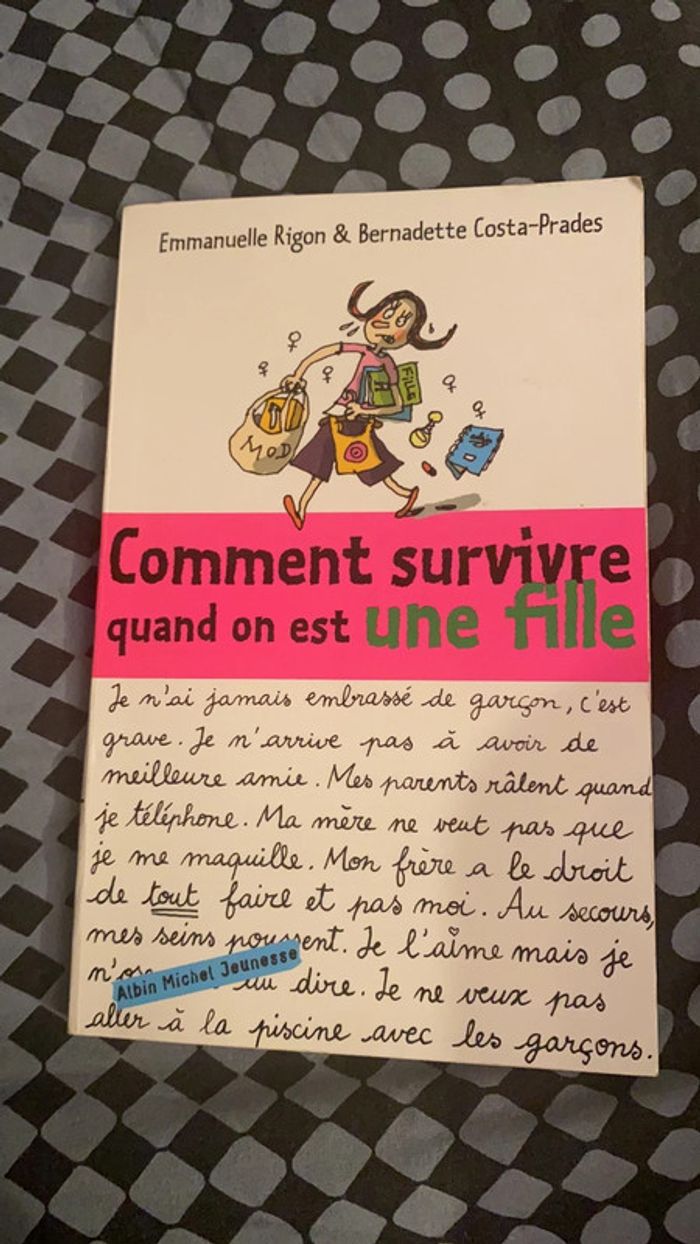 Emmanuelle Rigon & Bernadette Costa-Prades
Fille
MOD
Comment survivre
quand on est une fille
Je n'ai jamais embrassé de garçon, c'est
grave. Je n'arrive pas à avoir de
meilleure amie. Mes parents râlent quand
je téléphone. Ma mère ne veut pas que
je me maquille. Mon frère a le droit
de tout faire et pas moi. Au secours,
mes seins poussent. Je l'aime mais je
Albin Michel Jeunesse
dire. Je ne veux pas
aller à la piscine avec les garçons.